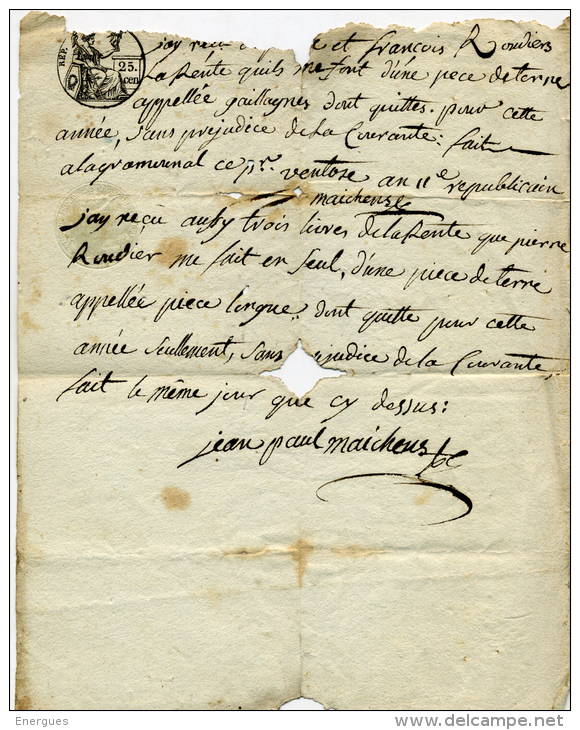 RÉP.
25.
cen
jay reçu et françois Roudiers
La Rente quils me font d'une piece de terre
appellée gaillagnes dont quittes. pour cette
année, sans prejudice de la Courante: fait
ce pr. ventose an 11e republicain
maichens
jay reçu aussy trois livres de la Rente que pierre
Roudier me fait en seul, d'une piece de terre
appellée piece longue, dont quitte pour cette
année seullement, sans prejudice de la Courante
fait le même jour que cy dessus:
jean paul maichens
Energues
www.delcampe.net